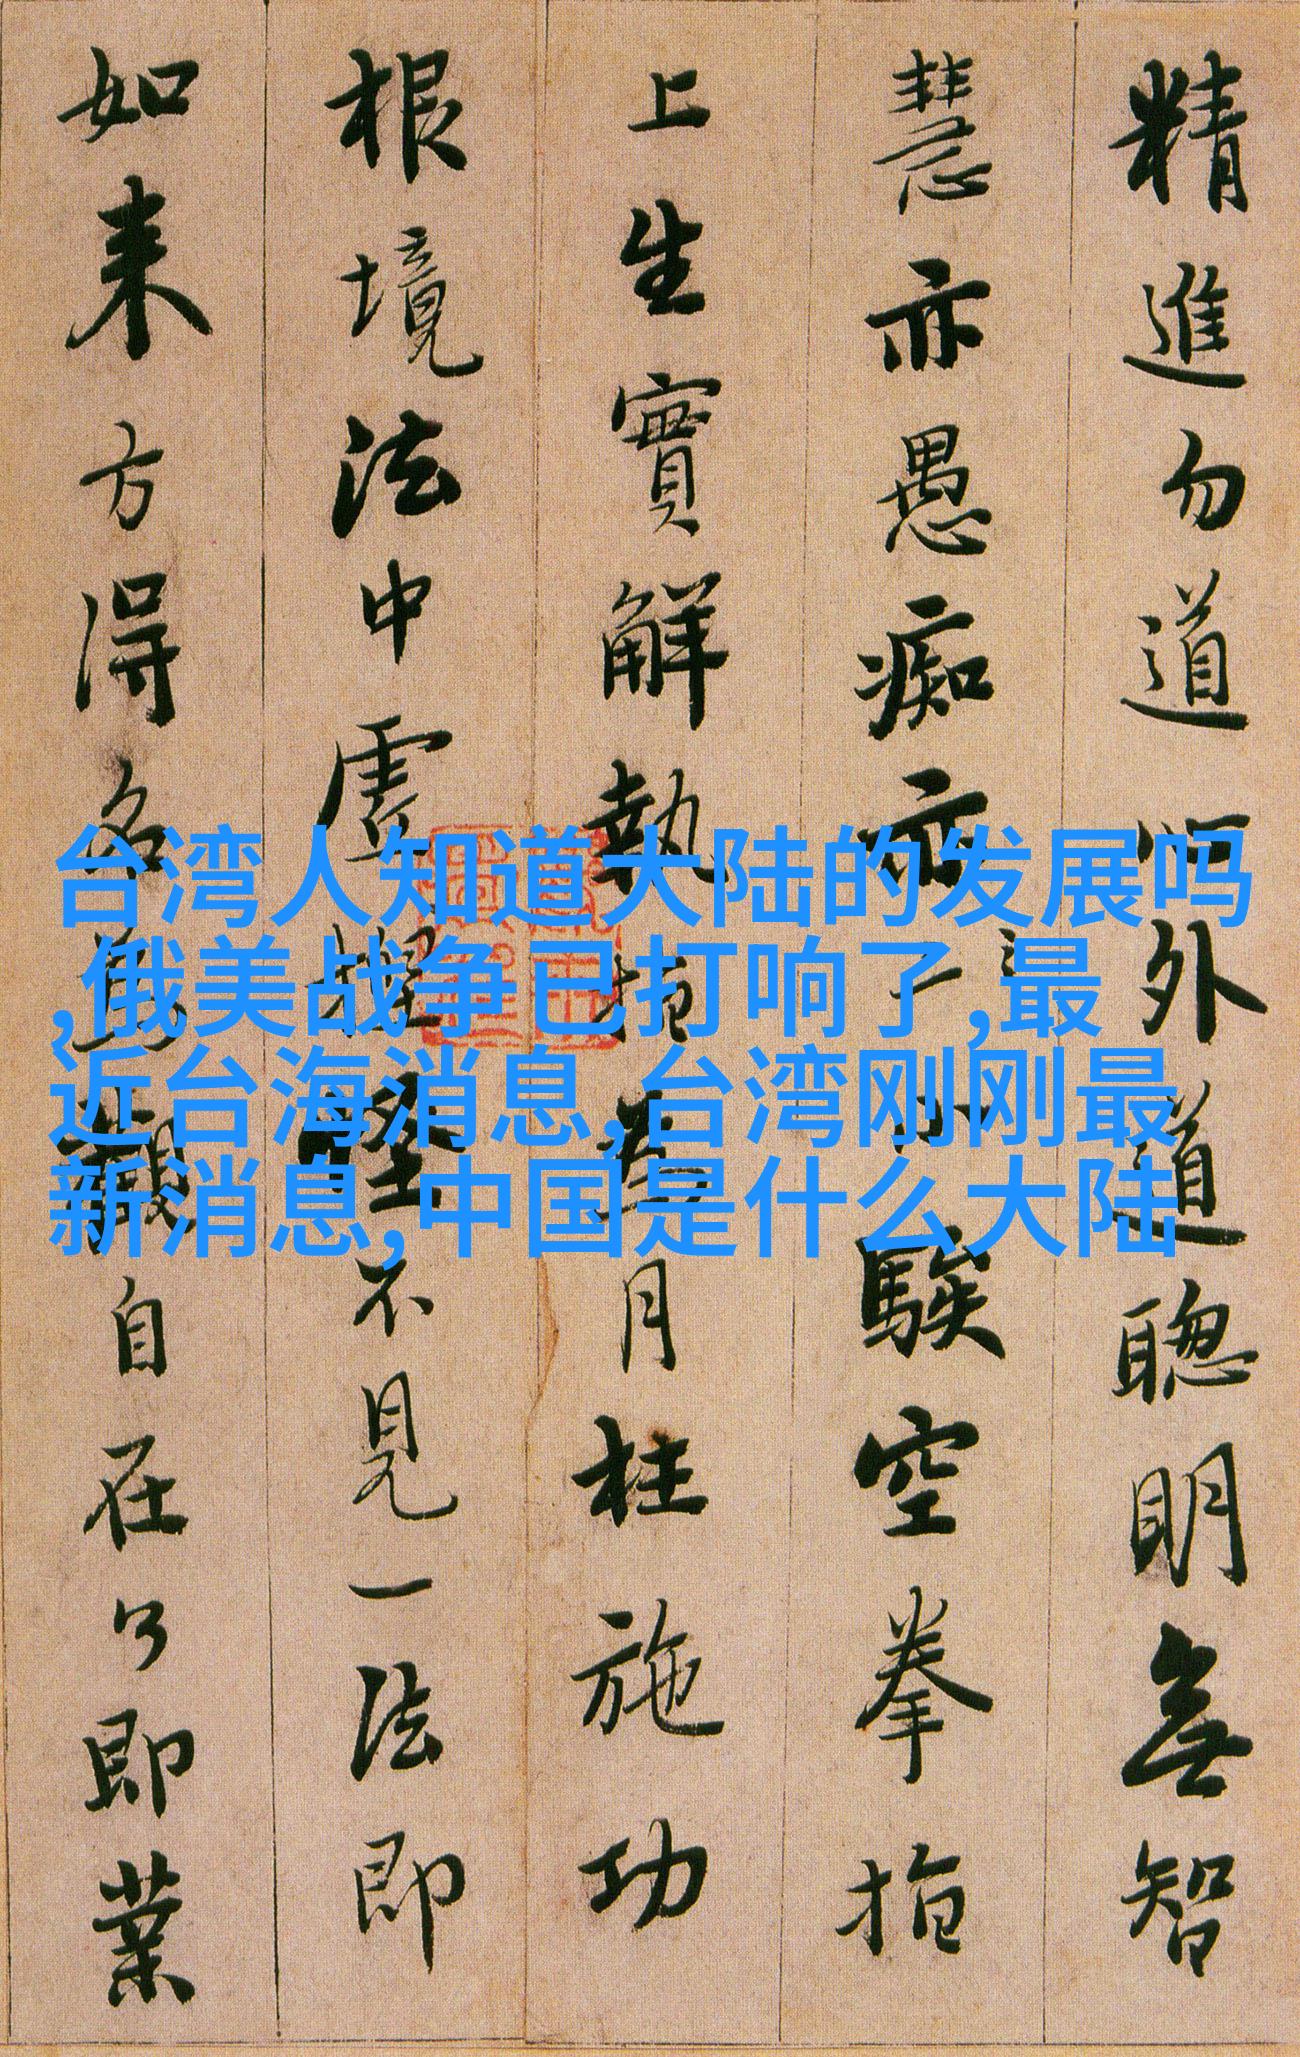 精進勿道心外道聰明無智
慧亦愚痴亦小騃空拳指
上生實解執指為月枉施功
根境法中虛捏怪不見一法即
如来方得名為觀自在了即業
台湾人知道大陆的发展吗
,俄美战争已打响了,最
近台海消息,台湾刚刚最
新消息,中国是什么大陆